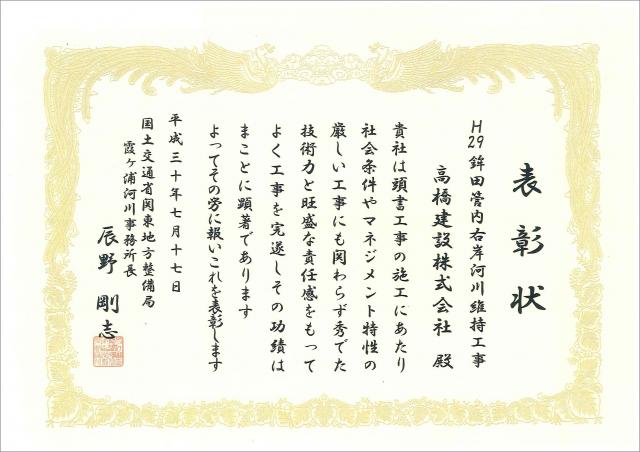 表彰状
H29鉾田管内右岸河川維持工事
高橋建設株式会社 殿
貴社は頭書工事の施工にあたり
社会条件やマネジメント特性の
厳しい工事にも関わらず秀でた
技術力と旺盛な責任感をもって
よく工事を完遂しその功績は
まことに顕著であります
よってその労に報いこれを表彰します
平成三十年七月十七日
国土交通省関東地方整備局
霞ヶ浦河川事務所長
辰野剛志